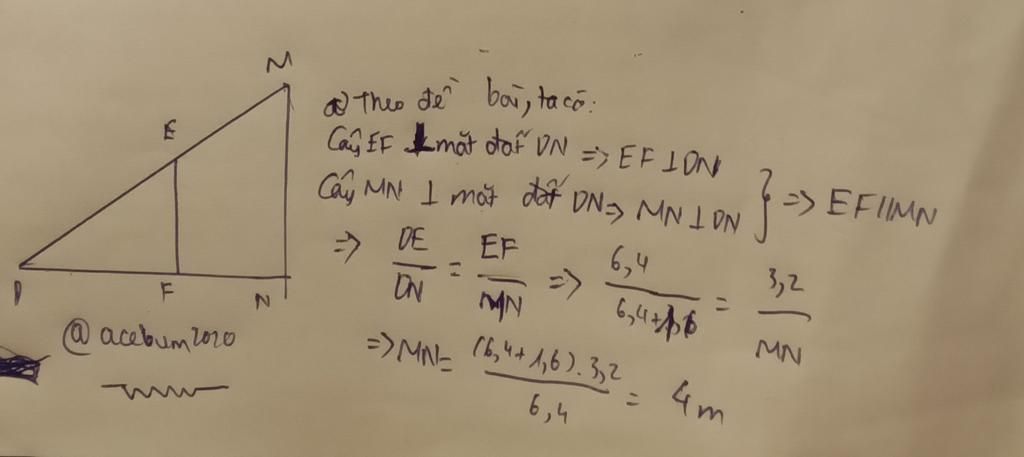 M
E
D
F
N
@acebum2020
a) Theo đề bài, ta có:
Cây EF ⊥ mặt đất DN => EF ⊥ DN
Cây MN ⊥ mặt đất DN => MN ⊥ DN } => EF // MN
=> DE/DN = EF/MN => 6,4/6,4+1,6 = 3,2/MN
=> MN = (6,4+1,6).3,2/6,4 = 4m